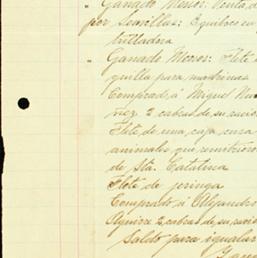 " Ganado Menor: Venta d
por Semillas: Equiboco en
trilladora
" Ganado Menor: Flete d
quilla para madrinas
Comprado á Miguel Nu
ñez 2 cabras de su
Flete de una caja
animales que remitieron
de Sta. Catalina
Flete de jeringa
Comprado á Alejandro
Aguirre 2 cabras de su
Saldo para igualar